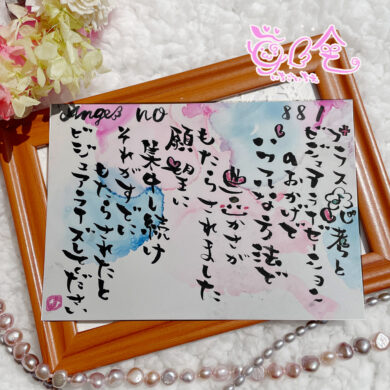 Anges no 881
プラス思考と
ビジュアライゼーション
のおかげで
いろんな方法で
豊かさが
もたらされました
願望に
集中し続け
それがすでに
もたらされたと
ビジュアライズしてください